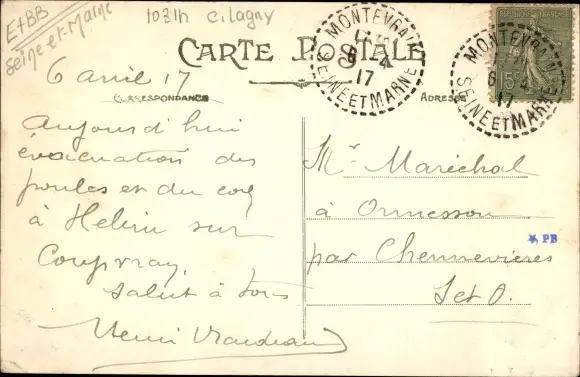 E+BB
Seine-et-Marne
1031h C. Lagny
CARTE POSTALE
MONTEVRAIN
6 4
17
SEINE ET MARNE
MONTEVRAIN
6 4
17
SEINE ET MARNE
15c
6 avril 17
CORRESPONDANCE
ADRESSE
Aujourd'hui
évacuation des
poules et du coq
à sur
Coupvray,
Salut à tous
Henri
Mr Maréchal
à Ormesson
par Chennevières
S et O.
PB